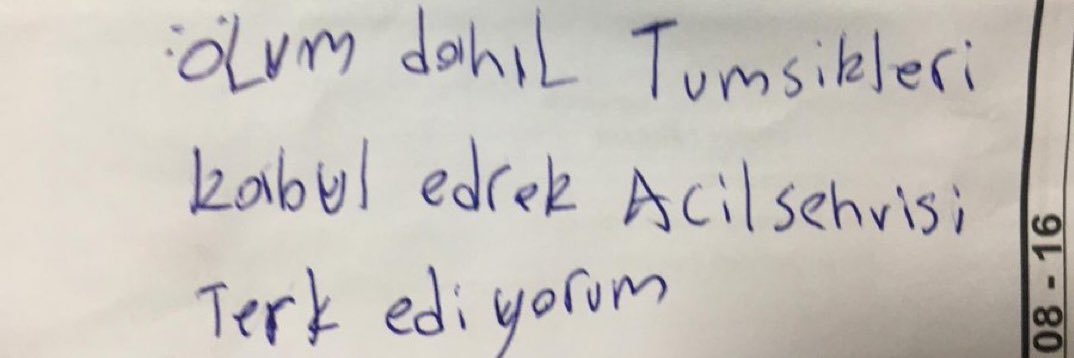 ölum dahıL Tumsikleri
kabul edrek Acilsehvisi
Terk ediyorum
08 - 16